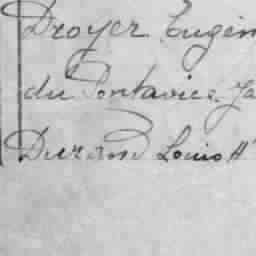 Droyer Eugèn
du Pontavice Ja
Durand Louis H